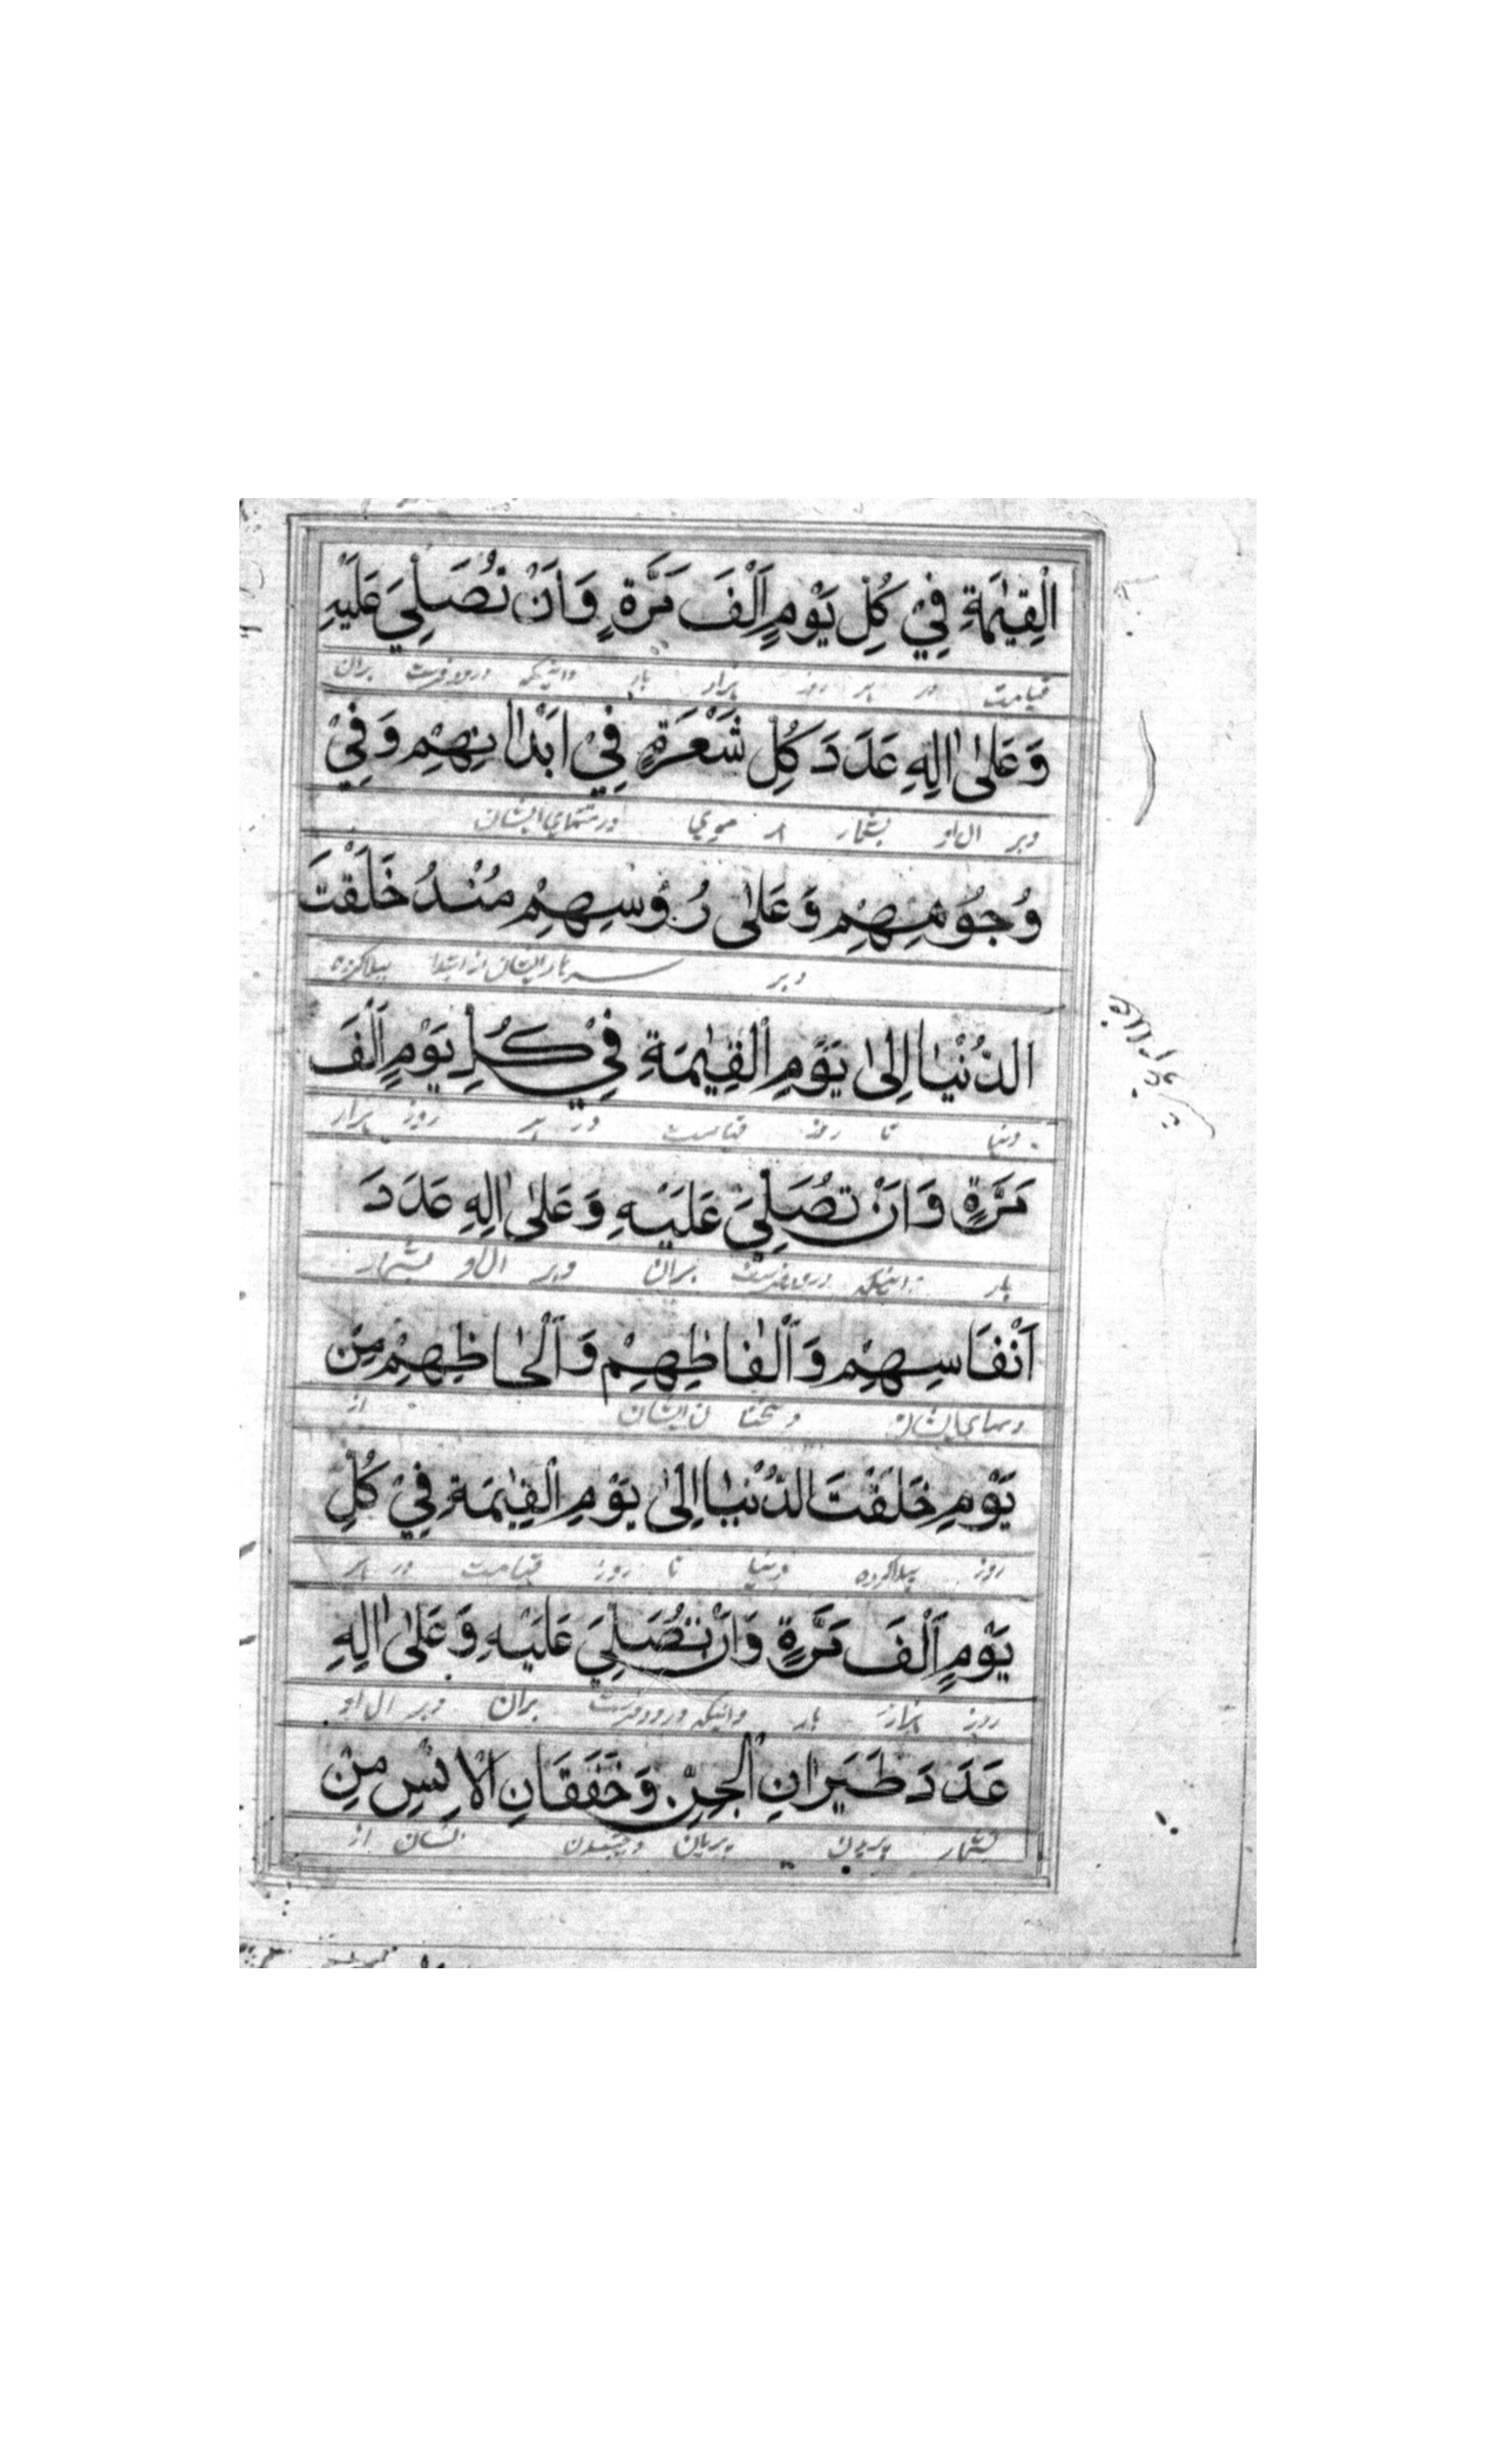 الْقِيٰمَةِ فِيْ كُلِّ يَوْمٍ اَلْفَ مَرَّةٍ وَاَنْ تُصَلِّيَ عَلَيْهِ
قیامت در هر روز هزار بار وانیکه درود فرست بران
وَعَلىٰ اٰلِهِ عَدَدَ كُلِّ شَعْرَةٍ فِيْ اَبْدَانِهِمْ وَفِيْ
وبر ال او بشمار هر موی در تنهای ایشان
وُجُوْهِهِمْ وَعَلىٰ رُؤُسِهِمْ مُنْذُ خَلَقْتَ
وبر سرهای ایشان از ابتدا پیدا کرده
الدُّنْيَا اِلىٰ يَوْمِ الْقِيٰمَةِ فِيْ كُلِّ يَوْمٍ اَلْفَ
دنیا تا روز قیامت در هر روز هزار
مَرَّةٍ وَاَنْ تُصَلِّيَ عَلَيْهِ وَعَلىٰ اٰلِهِ عَدَدَ
بار وانیکه درود فرست بران وبر ال او بشمار
اَنْفَاسِهِمْ وَاَلْفَاظِهِمْ وَاَلْحَاظِهِمْ مِنْ
دمهای ایشان وسخنان ایشان از
يَوْمِ خَلَقْتَ الدُّنْيَا اِلىٰ يَوْمِ الْقِيٰمَةِ فِيْ كُلِّ
روز پیدا کرده دنیا تا روز قیامت در هر
يَوْمٍ اَلْفَ مَرَّةٍ وَاَنْ تُصَلِّيَ عَلَيْهِ وَعَلىٰ اٰلِهِ
روز هزار بار وانیکه درود فرست بران وبر ال او
عَدَدَ طَيَرَانِ الْجِنِّ وَخَفَقَانِ الْاِنْسِ مِنْ
بشمار پریدن پریان وجنبیدن انسان از